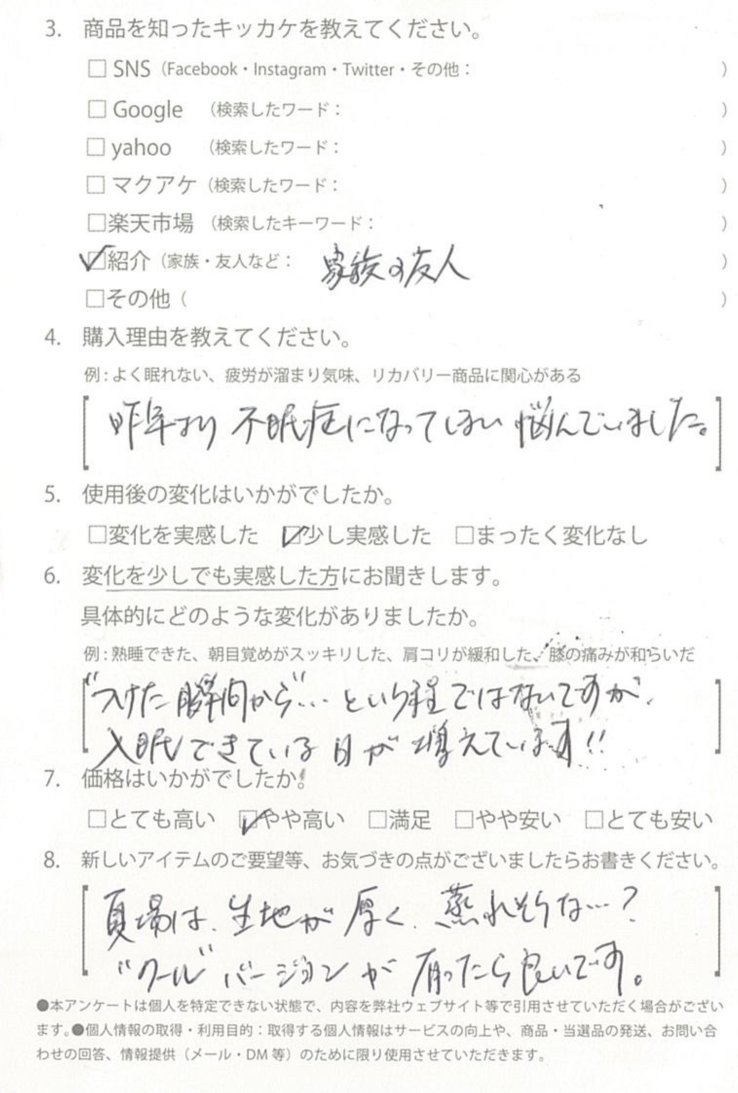 3. 商品を知ったキッカケを教えてください。
□ SNS（Facebook・Instagram・Twitter・その他： ）
□ Google （検索したワード： ）
□ yahoo （検索したワード： ）
□ マクアケ（検索したワード： ）
□楽天市場 （検索したキーワード： ）
☑紹介（家族・友人など： 家族の友人 ）
□その他（ ）
4. 購入理由を教えてください。
例：よく眠れない、疲労が溜まり気味、リカバリー商品に関心がある
昨年より 不眠症になってしまい 悩んでいました。
5. 使用後の変化はいかがでしたか。
□変化を実感した ☑少し実感した □まったく変化なし
6. 変化を少しでも実感した方にお聞きします。
具体的にどのような変化がありましたか。
例：熟睡できた、朝目覚めがスッキリした、肩コリが緩和した、膝の痛みが和らいだ
"つけた瞬間から"…という程ではないですが、
入眠できている日が増えています!!
7. 価格はいかがでしたか。
□とても高い ☑やや高い □満足 □やや安い □とても安い
8. 新しいアイテムのご要望等、お気づきの点がございましたらお書きください。
夏場は、生地が厚く、蒸れそうな…?
"クール"バージョンが有ったら良いです。
●本アンケートは個人を特定できない状態で、内容を弊社ウェブサイト等で引用させていただく場合がござい
ます。●個人情報の取得・利用目的：取得する個人情報はサービスの向上や、商品・当選品の発送、お問い合
わせの回答、情報提供（メール・DM 等）のために限り使用させていただきます。